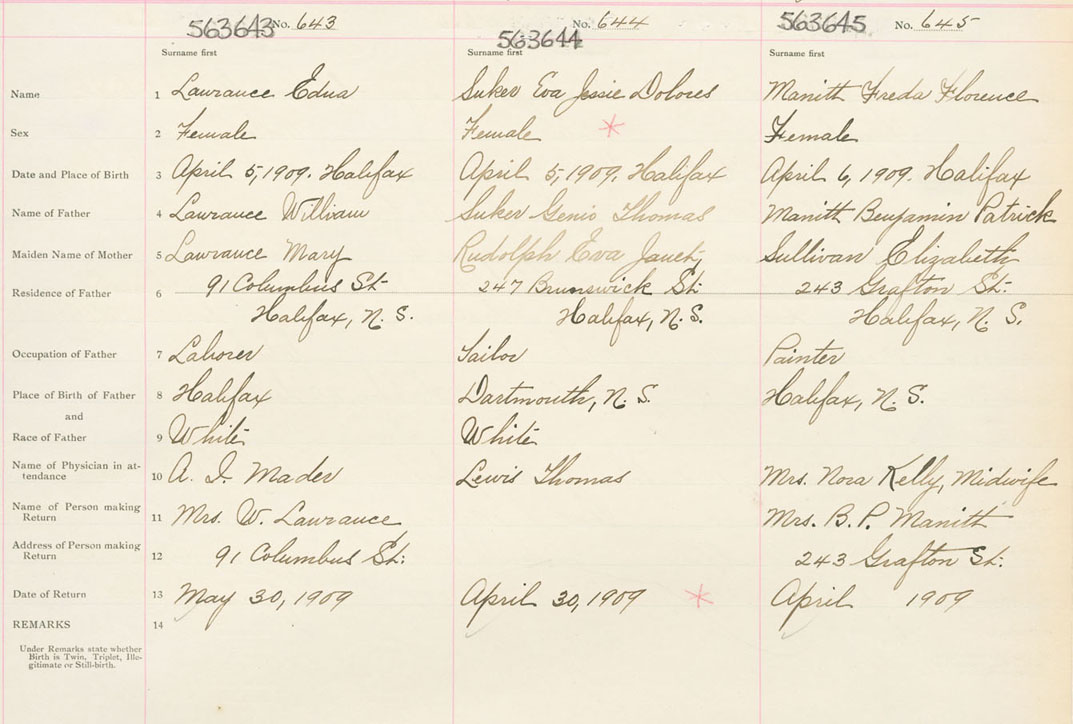 563643 No. 643 563644 No. 644 563645 No. 645
Surname first Surname first Surname first
Name 1 Lawrance Edna Suker Eva Jessie Dolores Manith Freda Florence
Sex 2 Female Female Female
Date and Place of Birth 3 April 5, 1909. Halifax April 5, 1909. Halifax April 6, 1909. Halifax
Name of Father 4 Lawrance William Suker Genio Thomas Manith Benjamin Patrick
Maiden Name of Mother 5 Lawrance Mary Rudolph Eva Janet, Sullivan Elizabeth
Residence of Father 6 91 Columbus St. 247 Brunswick St. 243 Grafton St.
Halifax, N. S. Halifax, N. S. Halifax, N. S.
Occupation of Father 7 Laborer Tailor Painter
Place of Birth of Father 8 Halifax Dartmouth, N. S. Halifax, N. S.
and
Race of Father 9 White White
Name of Physician in at-
tendance 10 A. I. Mader Lewis Thomas Mrs. Nora Kelly, Midwife
Name of Person making
Return 11 Mrs. W. Lawrance Mrs. B. P. Manith
Address of Person making
Return 12 91 Columbus St. 243 Grafton St.
Date of Return 13 May 30, 1909 April 30, 1909 April 1909
REMARKS 14
Under Remarks state whether
Birth is Twin, Triplet, Ille-
gitimate or Still-birth.